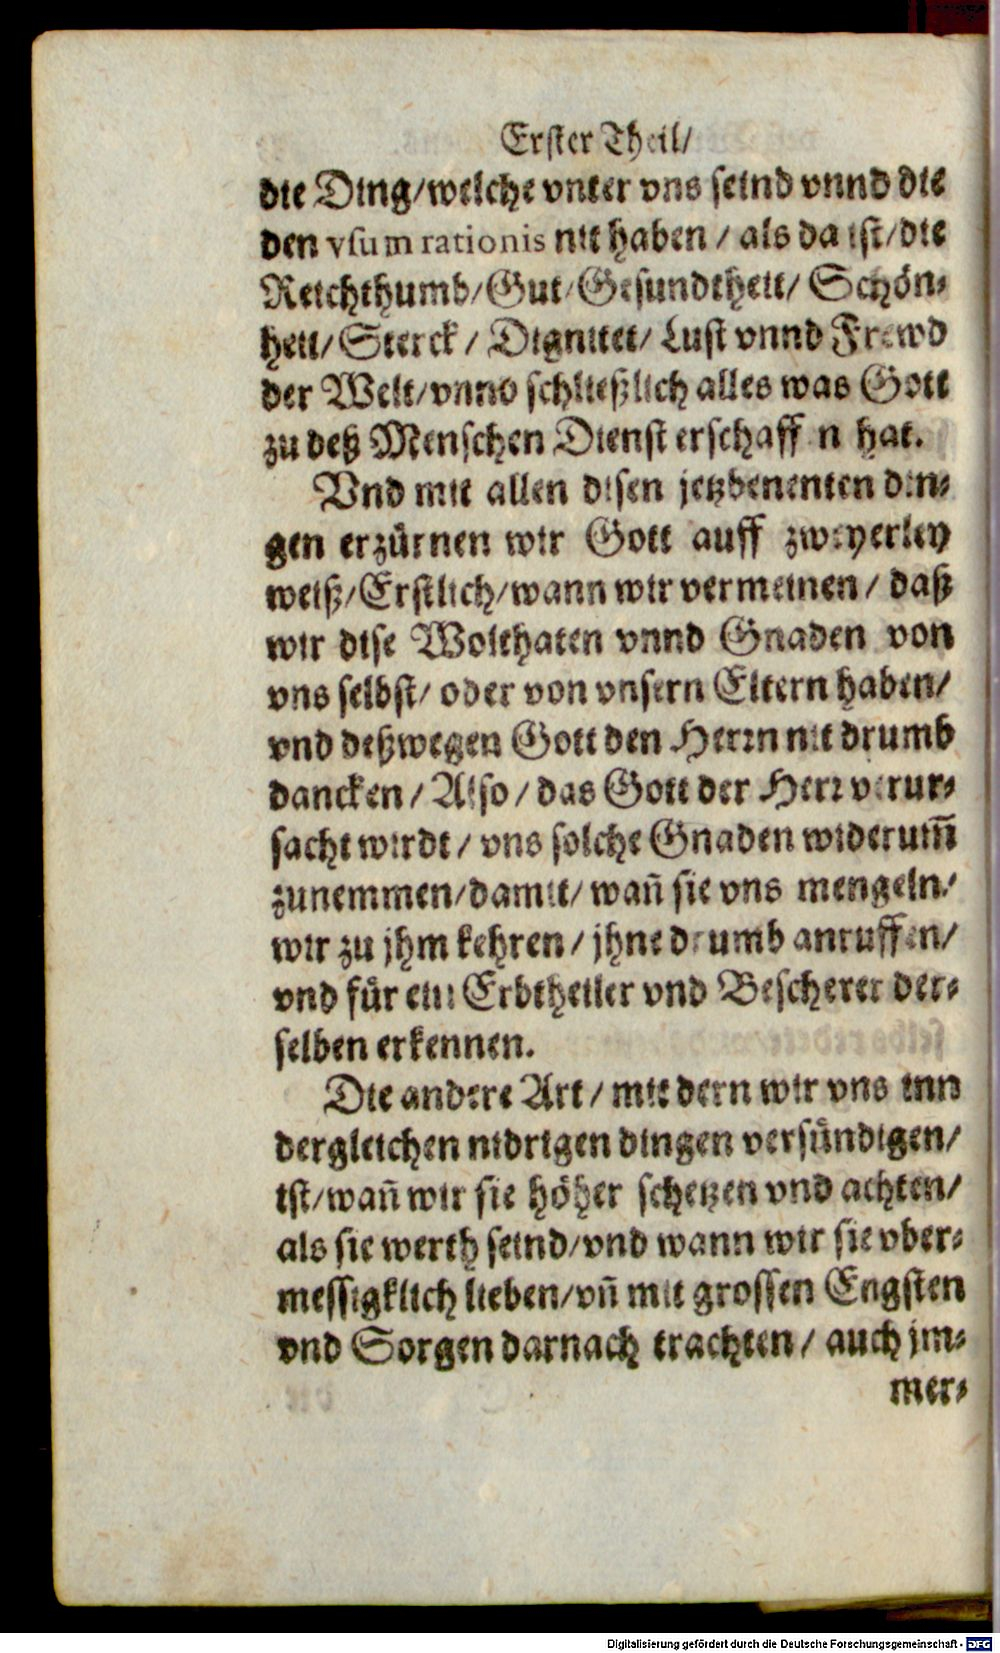 Erster Theil/
die Ding/welche vnter vns seind vnnd die
den vsum rationis nit haben / als da ist/die
Reichthumb/Gut/Gesundtheit/ Schön-
heit/Sterck / Dignitet/ Lust vnnd Frewd
der Welt/vnnd schließlich alles was Gott
zu deß Menschen Dienst erschaffen hat.
Vnd mit allen disen jetzbenenten din-
gen erzürnen wir Gott auff zweyerley
weiß/Erstlich/wann wir vermeinen / daß
wir dise Wolthaten vnnd Gnaden von
vns selbst/ oder von vnsern Eltern haben/
vnd deßwegen Gott den Herrn nit drumb
dancken / Also / das Gott der Herr verur-
sacht wirdt / vns solche Gnaden widerum̃
zunemmen/damit/ wañ sie vns mengeln/
wir zu jhm kehren / jhne drumb anruffen/
vnd für ein Erbtheiler vnd Bescherer der-
selben erkennen.
Die andere Art / mit dern wir vns inn
dergleichen nidrigen dingen versündigen/
ist/wañ wir sie höher schetzen vnd achten/
als sie werth seind/vnd wann wir sie vber-
messigklich lieben/vñ mit grossen Engsten
vnd Sorgen darnach trachten / auch jm-
mer-
Digitalisierung gefördert durch die Deutsche Forschungsgemeinschaft - DFG